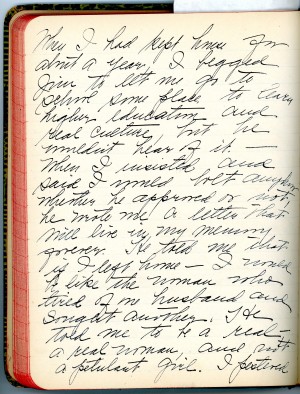 When I had kept house for
about a year, I begged
him to let me go to
school some place to learn
higher education and
real culture, but he
wouldn't hear of it. —
When I insisted and
said I would bolt anyhow
whether he approved or not,
he wrote me a letter that
will live in my memory
forever. He told me that
if I left home — I would
be like the woman who
tired of one husband and
sought another. He
told me to be a real —
a real woman, and not
a petulant girl. I